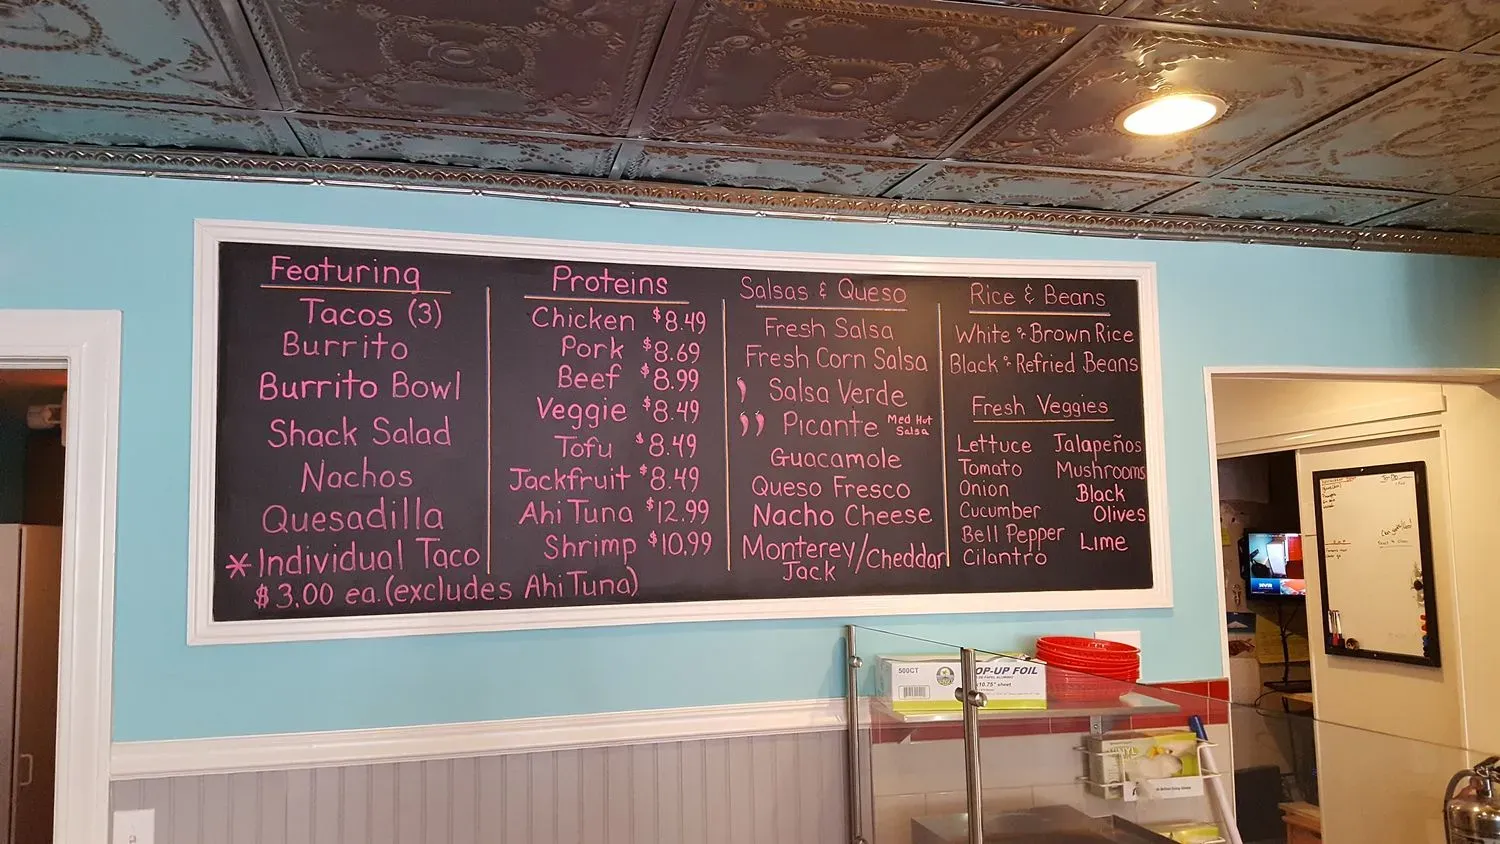 Featuring
Tacos (3)
Burrito
Burrito Bowl
Shack Salad
Nachos
Quesadilla
* Individual Taco
$3.00 ea. (excludes Ahi Tuna)
Proteins
Chicken $8.49
Pork $8.69
Beef $8.99
Veggie $8.49
Tofu $8.49
Jackfruit $8.49
Ahi Tuna $12.99
Shrimp $10.99
Salsas & Queso
Fresh Salsa
Fresh Corn Salsa
Salsa Verde
Picante Med Hot
Salsa
Guacamole
Queso Fresco
Nacho Cheese
Monterey/Cheddar
Jack
Rice & Beans
White & Brown Rice
Black & Refried Beans
Fresh Veggies
Lettuce
Tomato
Onion
Cucumber
Bell Pepper
Cilantro
Jalapeños
Mushrooms
Black
Olives
Lime
500CT
OP-UP FOIL
10.75" sheet
NVR
To-Do